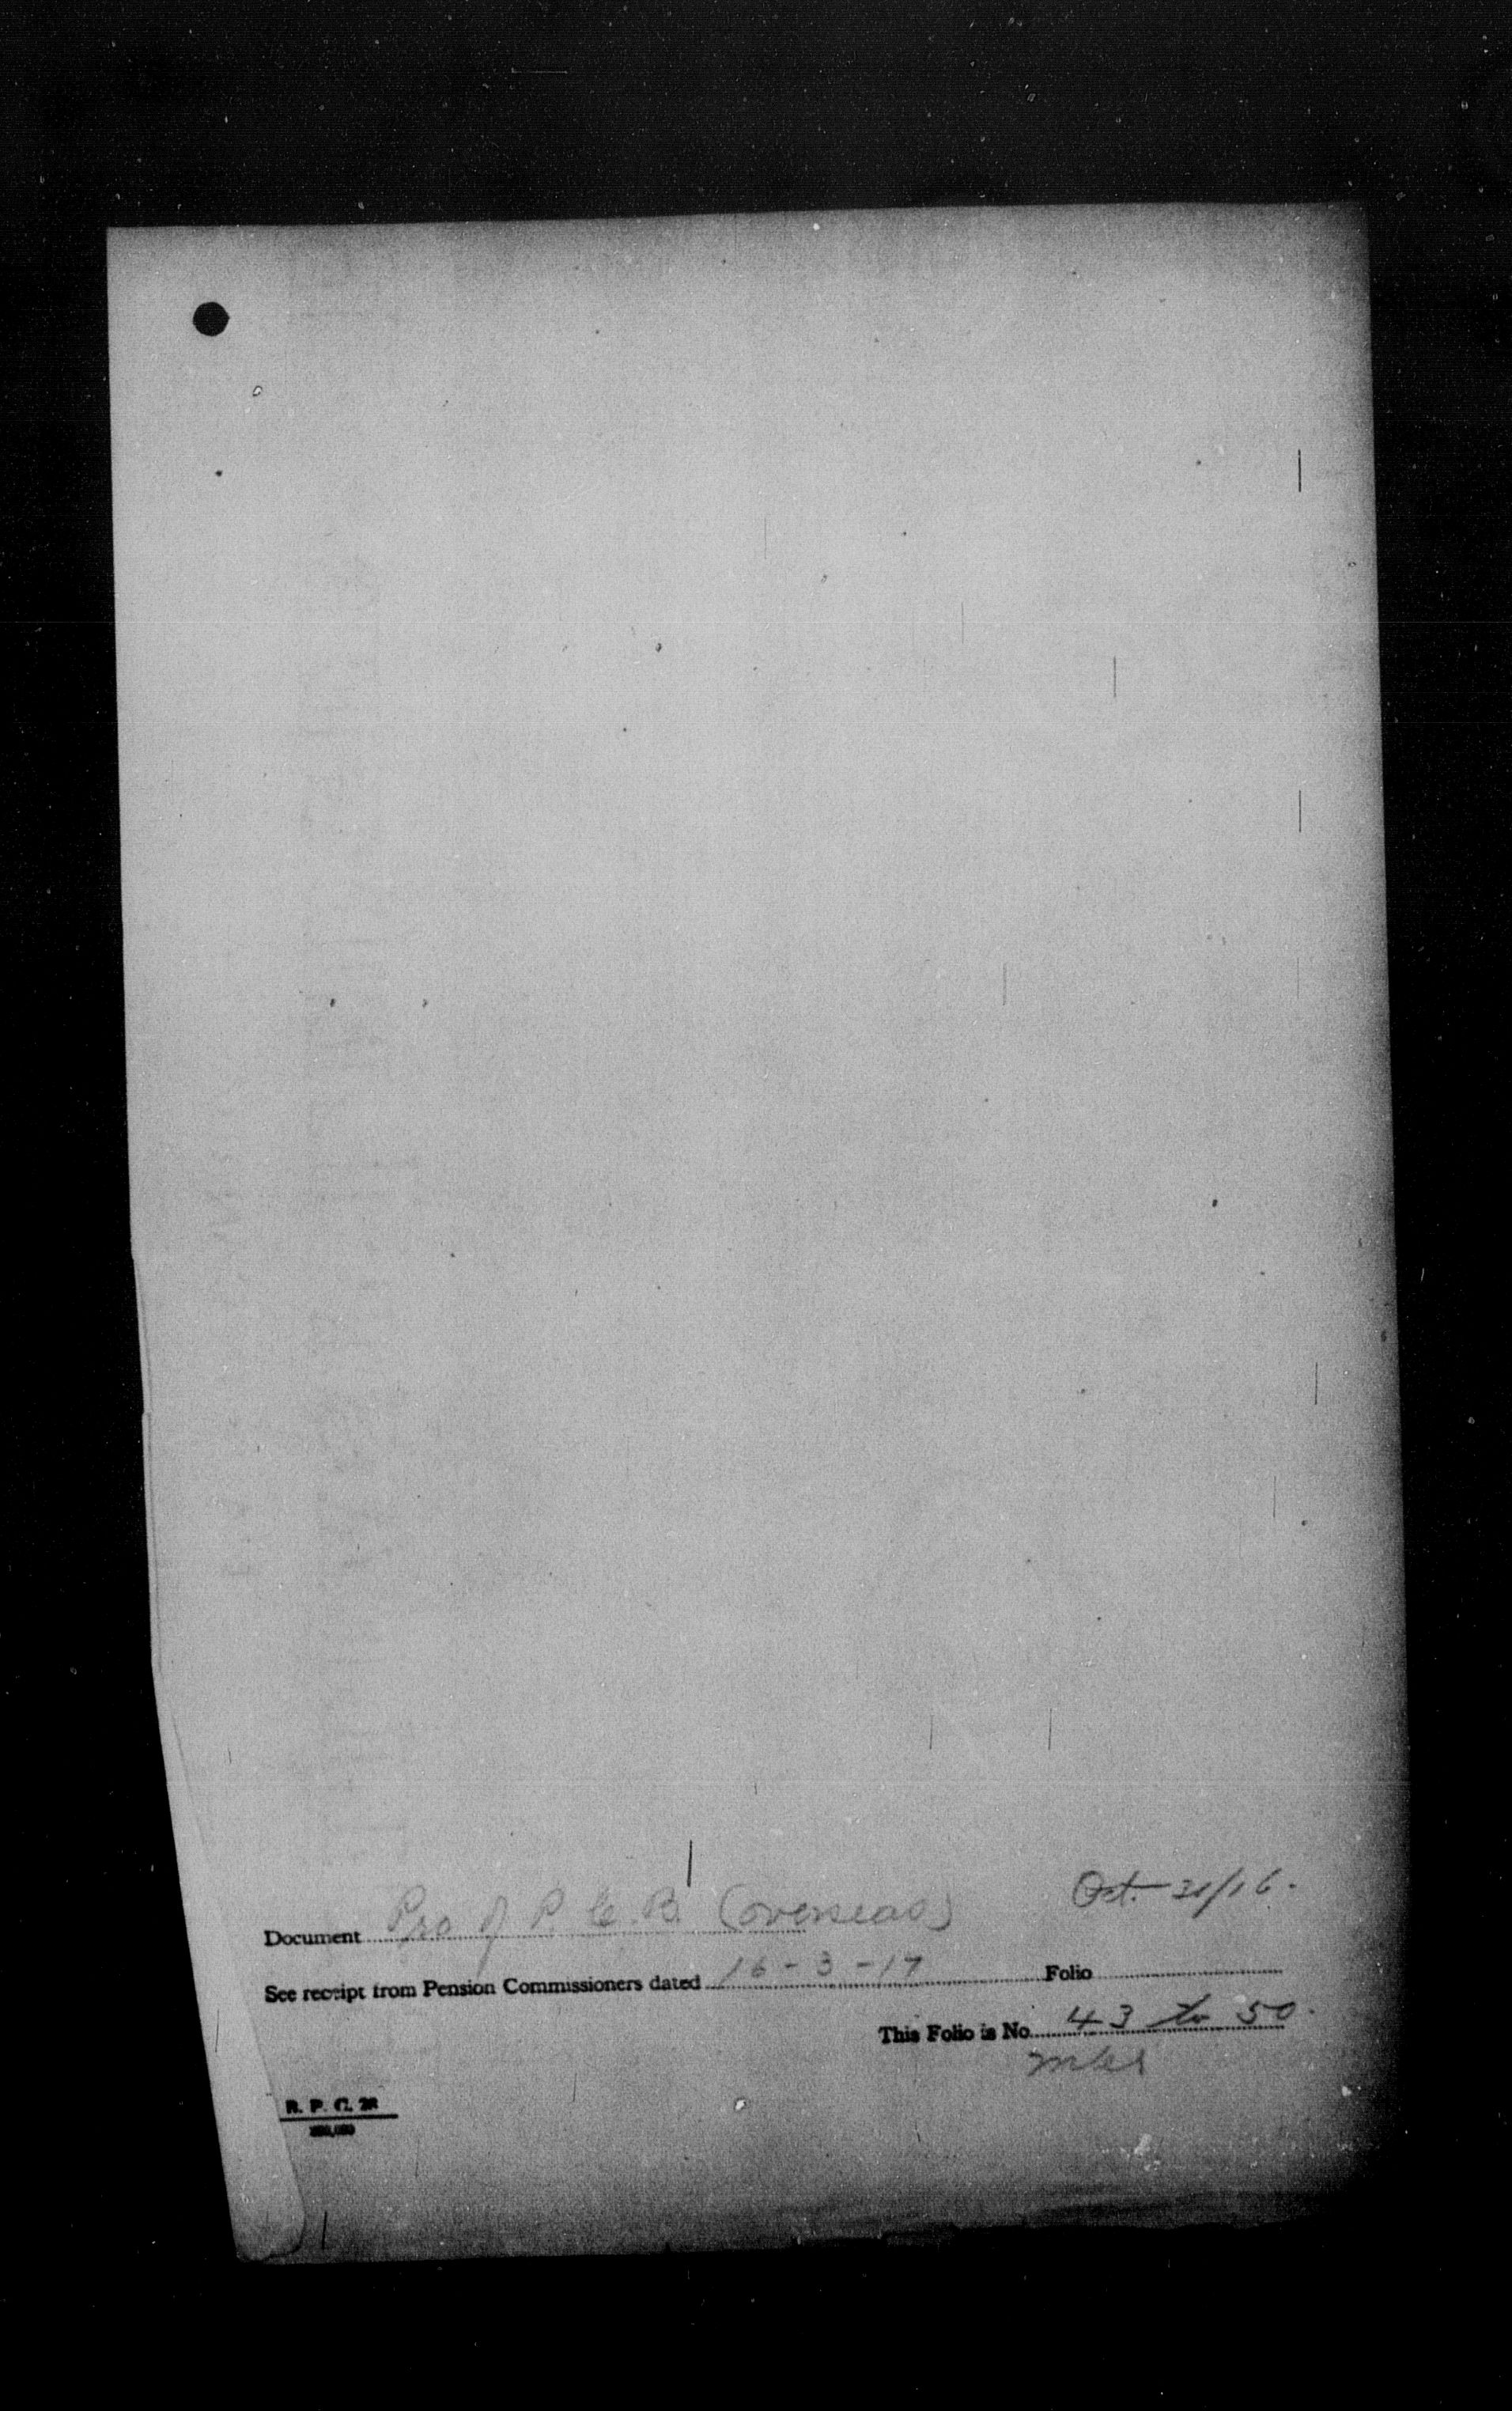 Oct. 31/16.
Document Pro of P. C. B. (overseas)
See receipt from Pension Commissioners dated 16-3-17 Folio
This Folio is No. 43 to 50.
R. P. C. 28